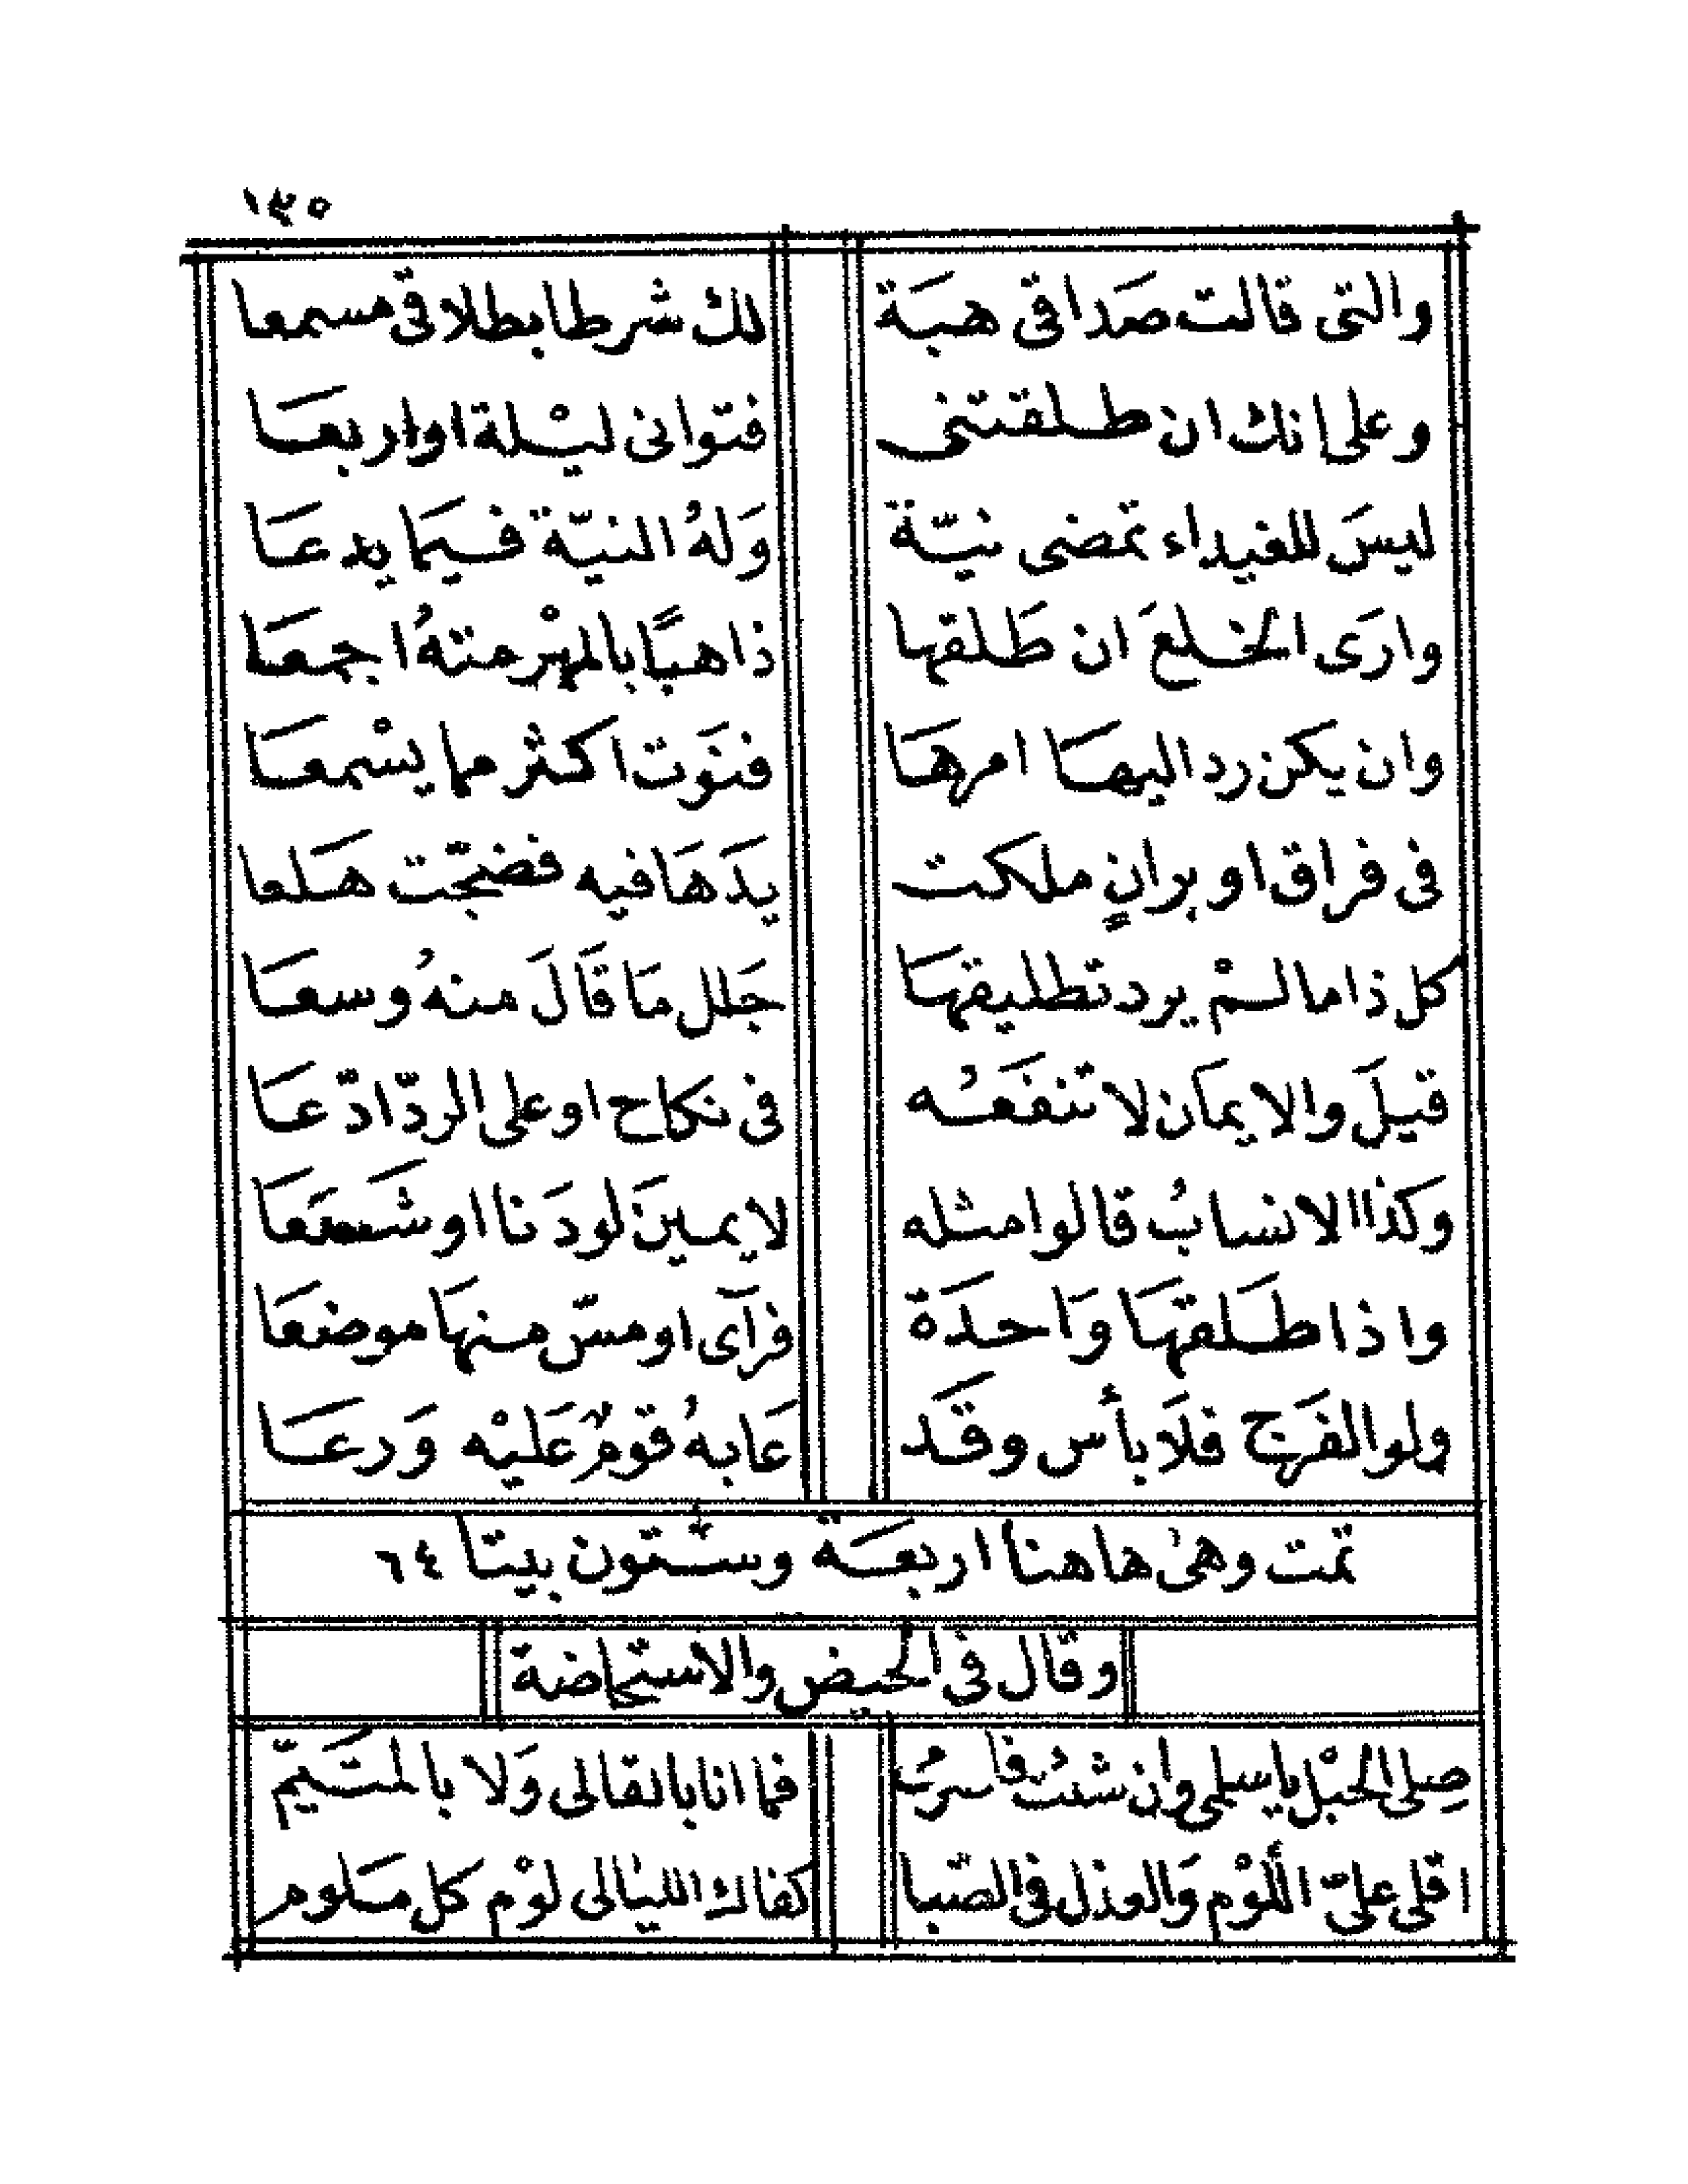 ١٣٥
والتى قالت صَداقى هبَة لك شرطا بطلاقى مسمعا
وعلى انك ان طلقتنى فتوانى ليْلة او اربعَا
ليسَ للغيداء تمضى نيّة وَلهُ النيّة فيمَا يدعَا
وارَى الخلعَ ان طَلقها ذاهبًا بالمهْر منهُ اجمعَا
وان يكن رد اليهَا امرهَا فنوَت اكثر مما يسْمعَا
فى فراق او برانٍ ملكت يدَهَا فيه فضجّت هَلعا
كل ذا ما لمْ يرد تطليقهَا جَلل مَا قَالَ منهُ وسعَا
قيلَ والايمَان لا تنفَعُه فى نكاح او على الردّ ادّعَا
وكذا الانسابُ قالوا مثله لا يمينَ لو دَنا او شَسَعَا
واذا طَلقهَا وَاحدَة فرَآى او مسّ منهَا موضعَا
ولو الفَرج فلَا بأس وقَد عَابهُ قومٌ عَليْه وَرعَا
تمت وهى هاهنا اربعَة وستّون بيتا ٦٤
وقال فى الحيض والاستحاضة
صِلى الحبْل يا سلمى وان شئتُ فاسرُب فما انا بالقالى وَلا بالمتَيمّ
اقلى علىّ اللوْم وَالعذل فى الصّبا كفاك الليالى لوْم كل مَلوم